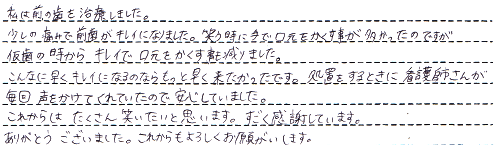 私は前の歯を治療しました。
少しの痛みで前歯がキレイになりました。笑う時に今まで口元をかくす事が多かったのですが
仮歯の時から キレイで口元をかくす事も減りました。
こんなに早くキレイになるのならもっと早く来たかったです。処置をするときに看護師さんが
毎回 声をかけてくれていたので安心していました。
これからは たくさん 笑いたいと思います。すごく感謝しています。
ありがとう ございました。これからもよろしくお願いします。